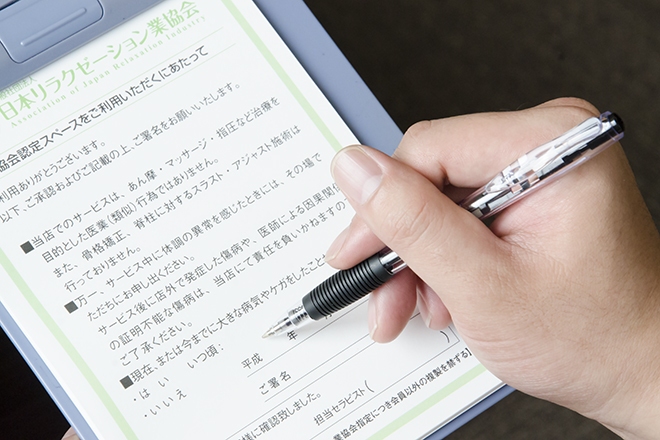 日本リラクゼーション業協会
Association of Japan Relaxation Industry
協会認定スペースをご利用いただくにあたって
利用ありがとうございます。
以下、ご承認およびご記載の上、ご署名をお願いいたします。
■当店でのサービスは、あん摩・マッサージ・指圧など治療を
目的とした医業(類似)行為ではありません。
また、骨格矯正、脊柱に対するスラスト・アジャスト施術は
行っておりません。
■万一、サービス中に体調の異常を感じたときには、その場で
ただちにお申し出ください。
サービス後に店外で発症した傷病や、医師による因果関係
の証明不能な傷病は、当店にて責任を負いかねますの
ご了承ください。
■現在、または今までに大きな病気やケガをしたこと
・はい いつ頃:
・いいえ
平成 年
ご署名
様に確認致しました。 担当セラピスト(
業協会指定につき会員以外の複製を禁ずる】